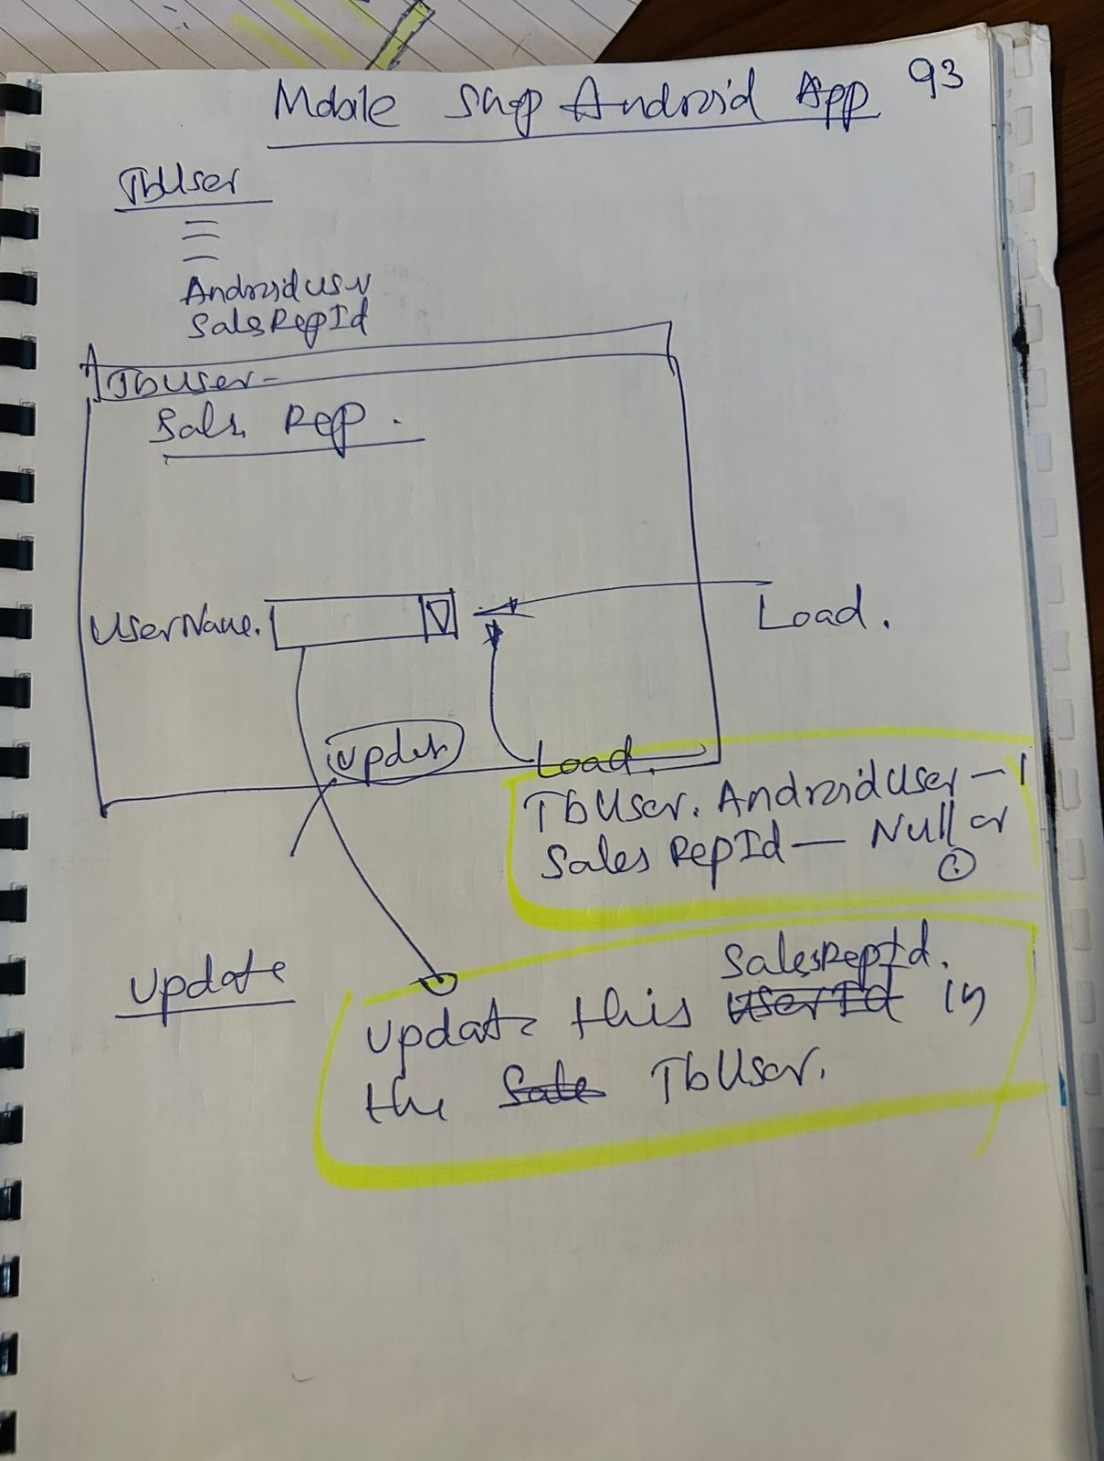 Mobile Shop Android App 93
TbUser
AndroidUser
SalesRepId
TbUser-
Sales Rep.
UserName.
Load.
Update
Load.
TbUser. AndroidUser - 1
SalesRepId - Null or
0
Update
SalesRepId.
Update this UserId in
the Sale TbUser.